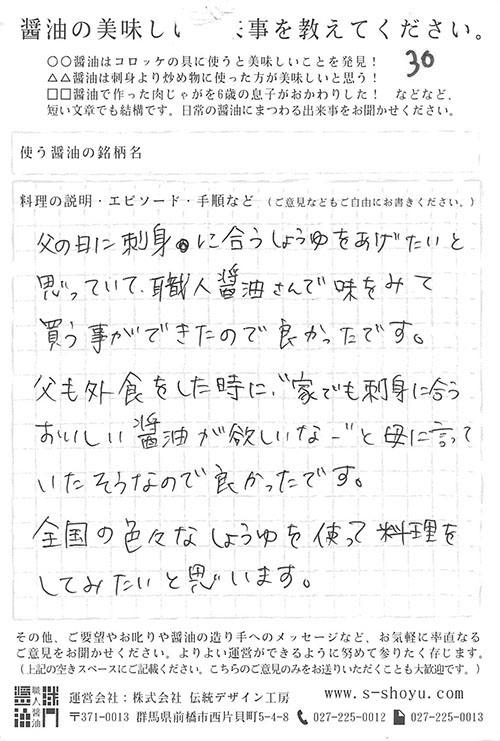 醤油の美味しい 事を教えてください。
○○醤油はコロッケの具に使うと美味しいことを発見！
30
△△醤油は刺身より炒め物に使った方が美味しいと思う！
□□醤油で作った肉じゃがを6歳の息子がおかわりした！ などなど、
短い文章でも結構です。日常の醤油にまつわる出来事をお聞かせください。
使う醤油の銘柄名
料理の説明・エピソード・手順など（ご意見などもご自由にお書きください。）
父の日に刺身に合うしょうゆをあげたいと
思っていて、職人醤油さんで味をみて
買う事ができたので良かったです。
父も外食をした時に、“家でも刺身に合う
おいしい醤油が欲しいなー”と母に言って
いたそうなので良かったです。
全国の色々なしょうゆを使って料理を
してみたいと思います。
その他、ご要望やお叱りや醤油の造り手へのメッセージなど、お気軽に率直なる
ご意見をお聞かせください。よりよい運営ができるように努めて参りたく存じます。
（上記の空きスペースにご記載ください。こちらのご意見のみをお送りいただくことも大歓迎です。）
職人醤油
運営会社：株式会社 伝統デザイン工房 www.s-shoyu.com
〒371-0013 群馬県前橋市西片貝町5-4-8 027-225-0012 027-225-0013